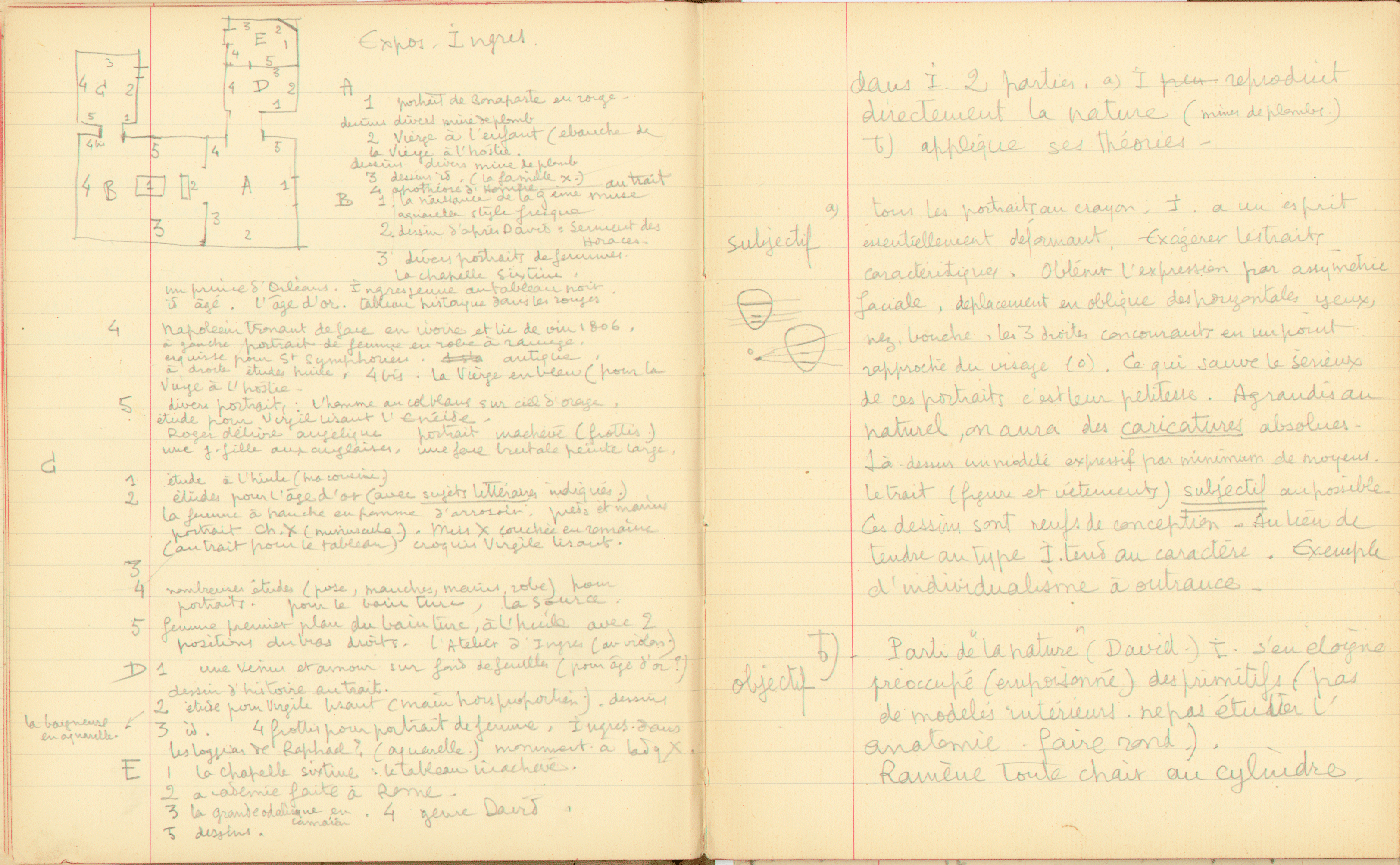 Expos. Ingres.
A
1 portrait de Bonaparte en rouge -
dessins divers mine de plomb
2 Vierge à l'enfant (ebauche de
la Vierge à l'hostie.
dessins divers mine de plomb
3 dessins id. (la famille x.)
4 apothéose d'Homère au trait
B 1. la naissance de la 9eme muse
aquarelle style fresque
2. dessin d'après David : Serment des
Horaces -
3 divers portraits de femmes.
la chapelle Sixtine.
un prince d'Orléans. Ingres jeune au tableau noir
id âgé. L'âge d'or. tableau historique dans les rouges
4 Napoléon tronant de face en ivoire et lie de vin 1806.
à gauche portrait de femme en robe à ramage.
esquisse pour St Symphorien. antique.
à droite études huile. 4 bis. la Vierge en bleu (pour la
Vierge à l'hostie -
5 divers portraits : l'homme au col blanc sur ciel d'orage.
étude pour Virgil lisant l'Eneide.
Roger délivre angélique portrait inachevé (frottis)
une j. fille aux anglaises. une face brutale peinte large.
C
1 étude à l'huile (ma cousine)
2 études pour l'âge d'or (avec sujets littéraires indiqués.)
la femme à hanche en pomme d'arrosoir. pieds et mains
portrait Ch. X (minuscule). Miss X couchée en romaine
(au trait pour le tableau) croquis Virgile lisant.
3
4 nombreuses études (pose, manches, mains, robe) pour
portraits. pour le bain turc, la source.
5 femme premier plan du bain turc, à l'huile avec 2
positions du bras droit. l'Atelier d'Ingres (au violon)
D 1 une Vénus et amour sur fond de feuilles (pour âge d'or ?)
dessin d'histoire au trait.
2 étude pour Virgile lisant (main hors proportion). dessins
la baigneuse
en aquarelle.
3 id. 4 frottis pour portrait de femme. Ingres dans
les loggias de Raphael ? (aquarelle.) monument à lady X.
E 1 la chapelle sixtine : le tableau inachevé.
2 academie faite à Rome.
3 la grande odalisque en camaïeu. 4 genre David.
5 dessins.
dans I. 2 parties. a) I reproduit
directement la nature (mines de plomb.)
b) applique ses théories -
a) subjectif
tous les portraits au crayon. I. a un esprit
essentiellement déformant. Exagérer les traits
caractéristiques. Obtenir l'expression par assymetrie
faciale, déplacement en oblique des horizontales yeux,
nez, bouche, les 3 droites concourants en un point
rapproché du visage (o). Ce qui sauve le sérieux
de ces portraits c'est leur petitesse. Agrandis au
naturel, on aura des caricatures absolues -
Là dessus un modelé expressif par minimum de moyens.
le trait (figure et vêtements) subjectif au possible
Ces dessins sont neufs de conception - Au lieu de
tendre au type I. tend au caractère. Exemple
d'individualisme à outrance -
b) objectif
Parti de "la nature" (David.) I. s'en éloigne
préoccupé (empoisonné) des primitifs (pas
de modelés intérieurs. ne pas étudier l'
anatomie. faire rond.).
Ramène toute chair au cylindre.
C 1 2 3 4 5
E 1 2 3 4 5
D 1 2 3 4
B 1 2 3 4 4bis 5
A 1 2 3 4 5